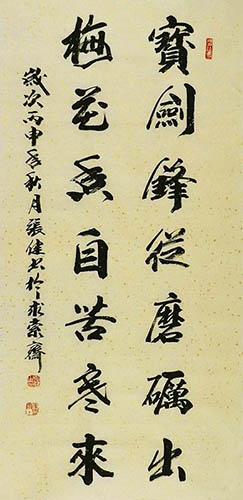 寶劍鋒從磨礪出
梅花香自苦寒來
歲次丙申年秋月張健書於求索齋